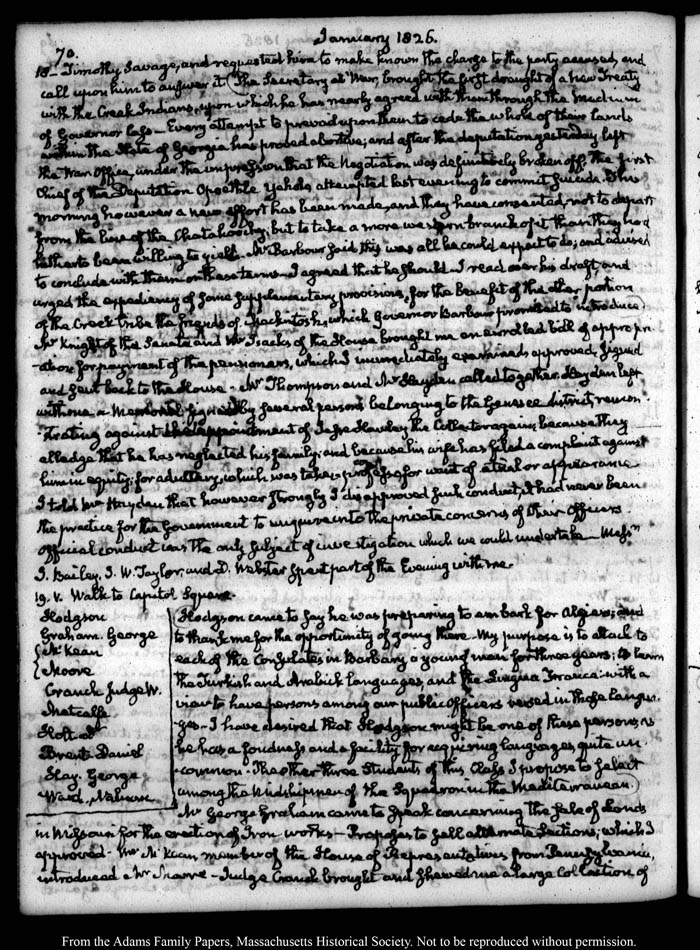 January 1826.
70.
18 - Timothy Savage, and requested him to make known the charge to the party accused, and
call upon him to answer it (The Secretary at War, brought the first draught of a new Treaty
with the Creek Indians, upon which he has nearly agreed with them through the medium
of Governor Cass - Every attempt to prevail upon them to cede the whole of their Lands
within the State of Georgia has proved abortive; and after the deputation yesterday left
the War Office, under the impression that the Negotiation was definitively broken off, the first
Chief of the Deputation Opothle Yoholo attempted last evening to commit suicide. This
morning however a new effort has been made, and they have consented, not to depart
from the line of the Chatahoochy; but to take a more western branch of it than they had
hitherto been willing to yield. Mr Barbour said this was all he could expect to do; and advised
to conclude with them on these terms - I agreed that he should - I read over his draft, and
urged the expediency of some supplementary provisions, for the benefit of the other portion
of the Creek tribe the friends of Mackintosh, which Governor Barbour promised to introduce)
Mr Knight of the Senate and Mr Isacks of the House brought me an enrolled bill of appropri-
-ation for payment of the pensioners, which I immediately examined approved, signed
and sent back to the House - Mr Thompson and Mr Hayden called together. Hayden left
with me a Memorial signed by several persons belonging to the Genesee district, remon-
-strating against the appointment of Jesse Hawley the Collector again; because they
alledge that he has neglected his family; and because his wife has filed a complaint against
him in equity, for adultery, which was taken pro confesso for want of a trial or appearance
I told Mr Hayden that however strongly I disapproved such conduct, it had never been
the practice for the Government to enquire into the private concerns of their Officers
Official conduct was the only subject of investigation which we could undertake - Messrs
J. Bailey, J. W. Taylor and D. Webster spent part of the Evening with me.
19. V. Walk to Capitol Square.
Hodgson
Graham. George
McKean
Moore
Cranch Judge W.
Metcalfe
Holt
Brent Daniel
Hay. George
Ward
Hodgson came to say he was preparing to embark for Algiers; and
to thank me for the opportunity of going there. My purpose is to attach to
each of the Consulates in Barbary a young man for three years; to learn
the Turkish and Arabick languages, and the Lingua Franca: with a
view to have persons among our public Officers versed in those langua-
ges - I have desired that Hodgson might be one of these persons, as
he has a fondness and a facility for acquiring languages, quite un-
-common. The other three Students of this Class I propose to select
among the Midshipmen of the Squadron in the Mediterranean)
Mr George Graham came to speak concerning the Sale of Lands
in Missouri for the erection of Iron works - Proposes to sell alternate Sections; which I
approved - Mr McKean member of the House of Representatives from Pennsylvania,
introduced a Mr Moore - Judge Cranch brought and shewed me a large collection of
From the Adams Family Papers, Massachusetts Historical Society. Not to be reproduced without permission.